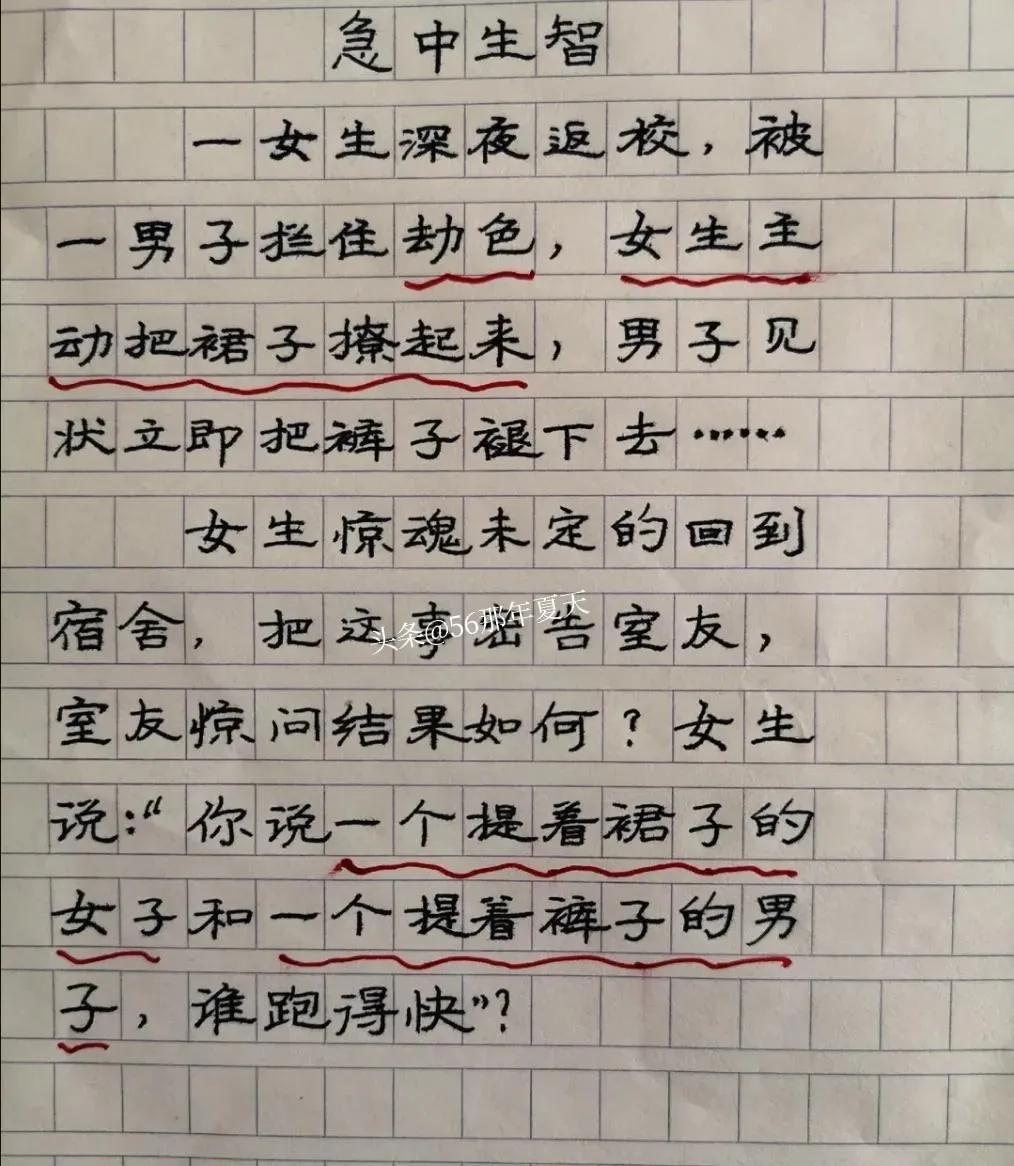 急中生智
一女生深夜返校，被
一男子拦住劫色，女生主
动把裙子撩起来，男子见
状立即把裤子褪下去……
女生惊魂未定的回到
宿舍，把这事密告室友，
室友惊问结果如何？女生
说：“你说一个提着裙子的
女子和一个提着裤子的男
子，谁跑得快”？
头条@56那年夏天